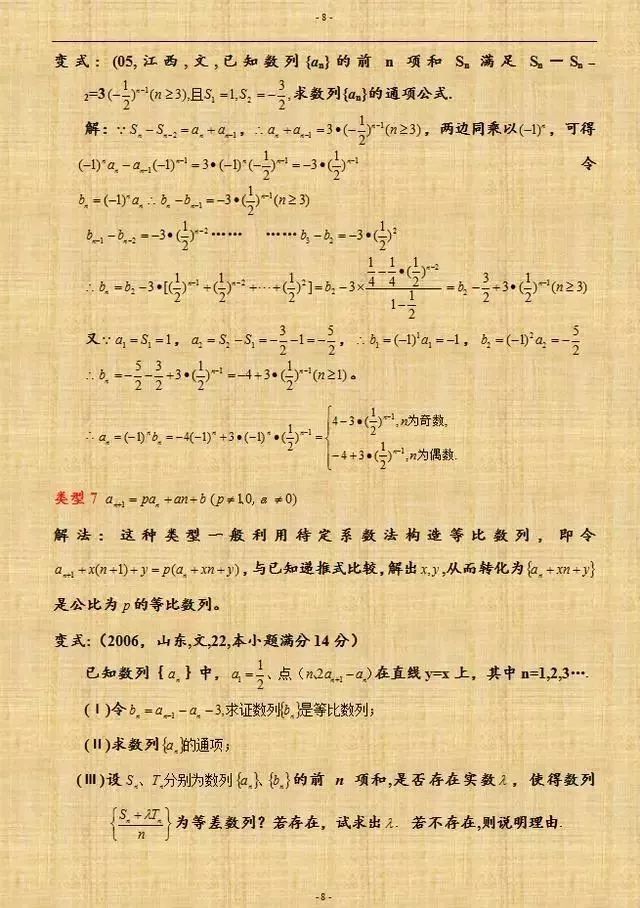 - 8 -
变式:(05,江西,文,已知数列{aₙ}的前 n 项和 Sₙ 满足 Sₙ－Sₙ₋
₂=3(-1/2)ⁿ⁻¹(n≥3),且S₁=1,S₂=-3/2,求数列{aₙ}的通项公式.
解:∵Sₙ-Sₙ₋₂=aₙ+aₙ₋₁,∴aₙ+aₙ₋₁=3•(-1/2)ⁿ⁻¹(n≥3),两边同乘以(-1)ⁿ,可得
(-1)ⁿaₙ-aₙ₋₁(-1)ⁿ⁻¹=3•(-1)ⁿ(-1/2)ⁿ⁻¹=-3•(1/2)ⁿ⁻¹ 令
bₙ=(-1)ⁿaₙ∴bₙ-bₙ₋₁=-3•(1/2)ⁿ⁻¹(n≥3)
bₙ₋₁-bₙ₋₂=-3•(1/2)ⁿ⁻²…… ……b₃-b₂=-3•(1/2)²
∴bₙ=b₂-3•[(1/2)ⁿ⁻¹+(1/2)ⁿ⁻²+⋯+(1/2)²]=b₂-3×(1/4-1/4•(1/2)ⁿ⁻²)/(1-1/2)=b₂-3/2+3•(1/2)ⁿ⁻¹(n≥3)
又∵a₁=S₁=1,a₂=S₂-S₁=-3/2-1=-5/2,∴b₁=(-1)¹a₁=-1,b₂=(-1)²a₂=-5/2
∴bₙ=-5/2-3/2+3•(1/2)ⁿ⁻¹=-4+3•(1/2)ⁿ⁻¹(n≥1)。
∴aₙ=(-1)ⁿbₙ=-4(-1)ⁿ+3•(-1)ⁿ•(1/2)ⁿ⁻¹={4-3•(1/2)ⁿ⁻¹,n为奇数,
-4+3•(1/2)ⁿ⁻¹,n为偶数.
类型 7 aₙ₊₁=paₙ+an+b (p≠1,0, a≠0)
解法:这种类型一般利用待定系数法构造等比数列,即令
aₙ₊₁+x(n+1)+y=p(aₙ+xn+y),与已知递推式比较,解出x,y,从而转化为{aₙ+xn+y}
是公比为p的等比数列。
变式:(2006,山东,文,22,本小题满分14分)
已知数列{aₙ}中,a₁=1/2、点(n,2aₙ₊₁-aₙ)在直线y=x上,其中n=1,2,3….
(Ⅰ)令bₙ=aₙ₋₁-aₙ-3,求证数列{bₙ}是等比数列;
(Ⅱ)求数列{aₙ}的通项;
(Ⅲ)设Sₙ、Tₙ分别为数列{aₙ}、{bₙ}的前 n 项和,是否存在实数λ,使得数列
{(Sₙ+λTₙ)/n}为等差数列?若存在,试求出λ. 若不存在,则说明理由.
- 8 -